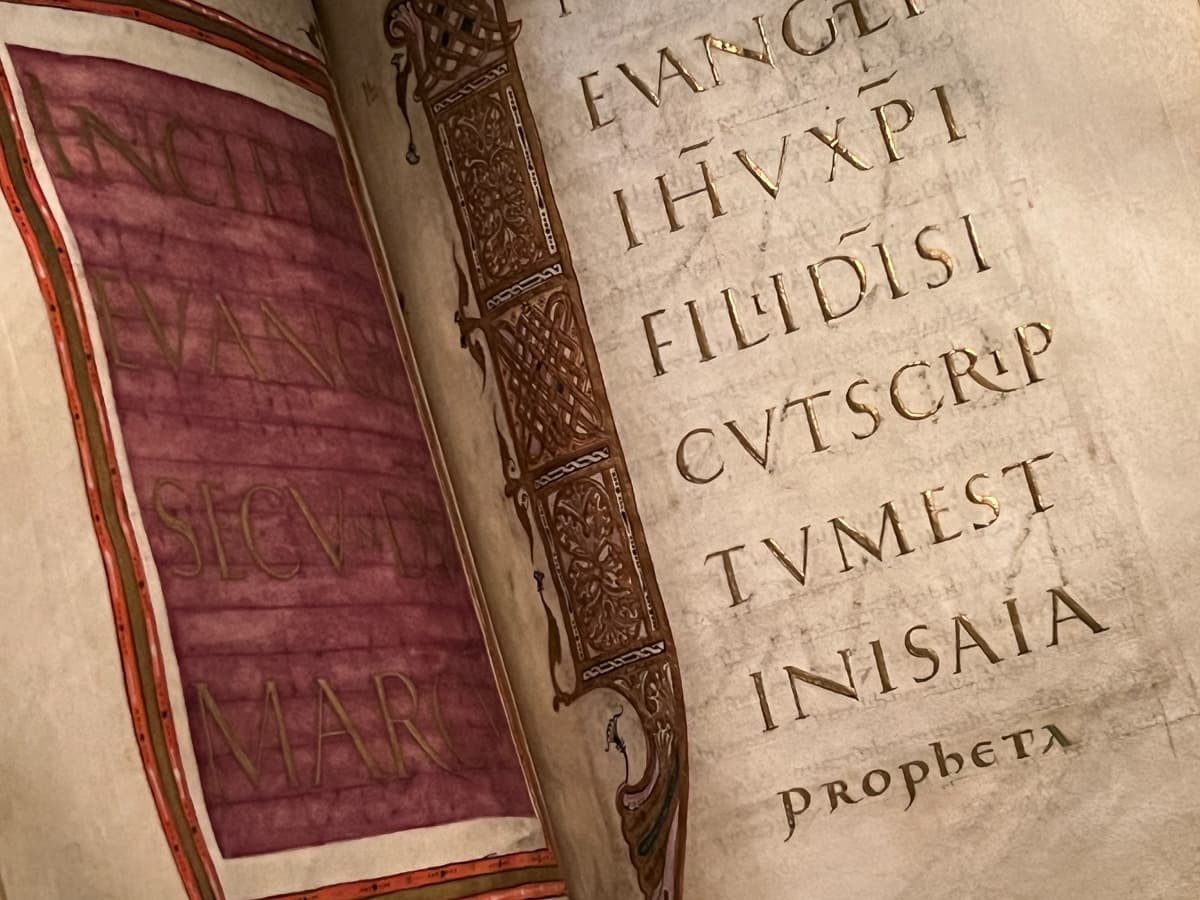 INCIPI
EVANG
SECVND
MARC
EVANGELI
IH̅V XP̅I
FILII DI̅ SI
CVT SCRIP
TVM EST
IN ISAIA
PROPhETA